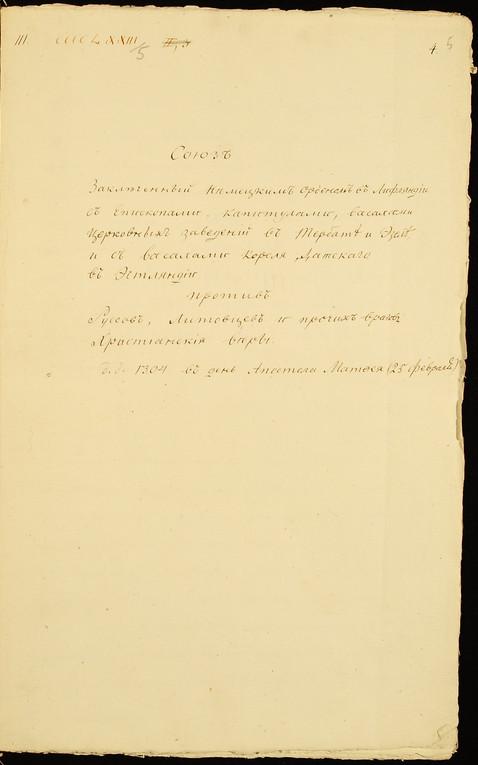 III. CCCLXXIII II, 3 4. 5
5
Союзъ
Заключенный Нѣмецкимъ Орденомъ въ Лифляндіи
съ Епископами, Капитулами, васалами
Церковныхъ заведеній въ Дербатѣ и Эзелѣ,
и съ васалами Короля Датскаго
въ Эстляндіи
противъ
Руссовъ, Литовцевъ и прочихъ враговъ
Христіанскія вѣры.
1304 въ день Апостола Матѳея (25 февраля)
5